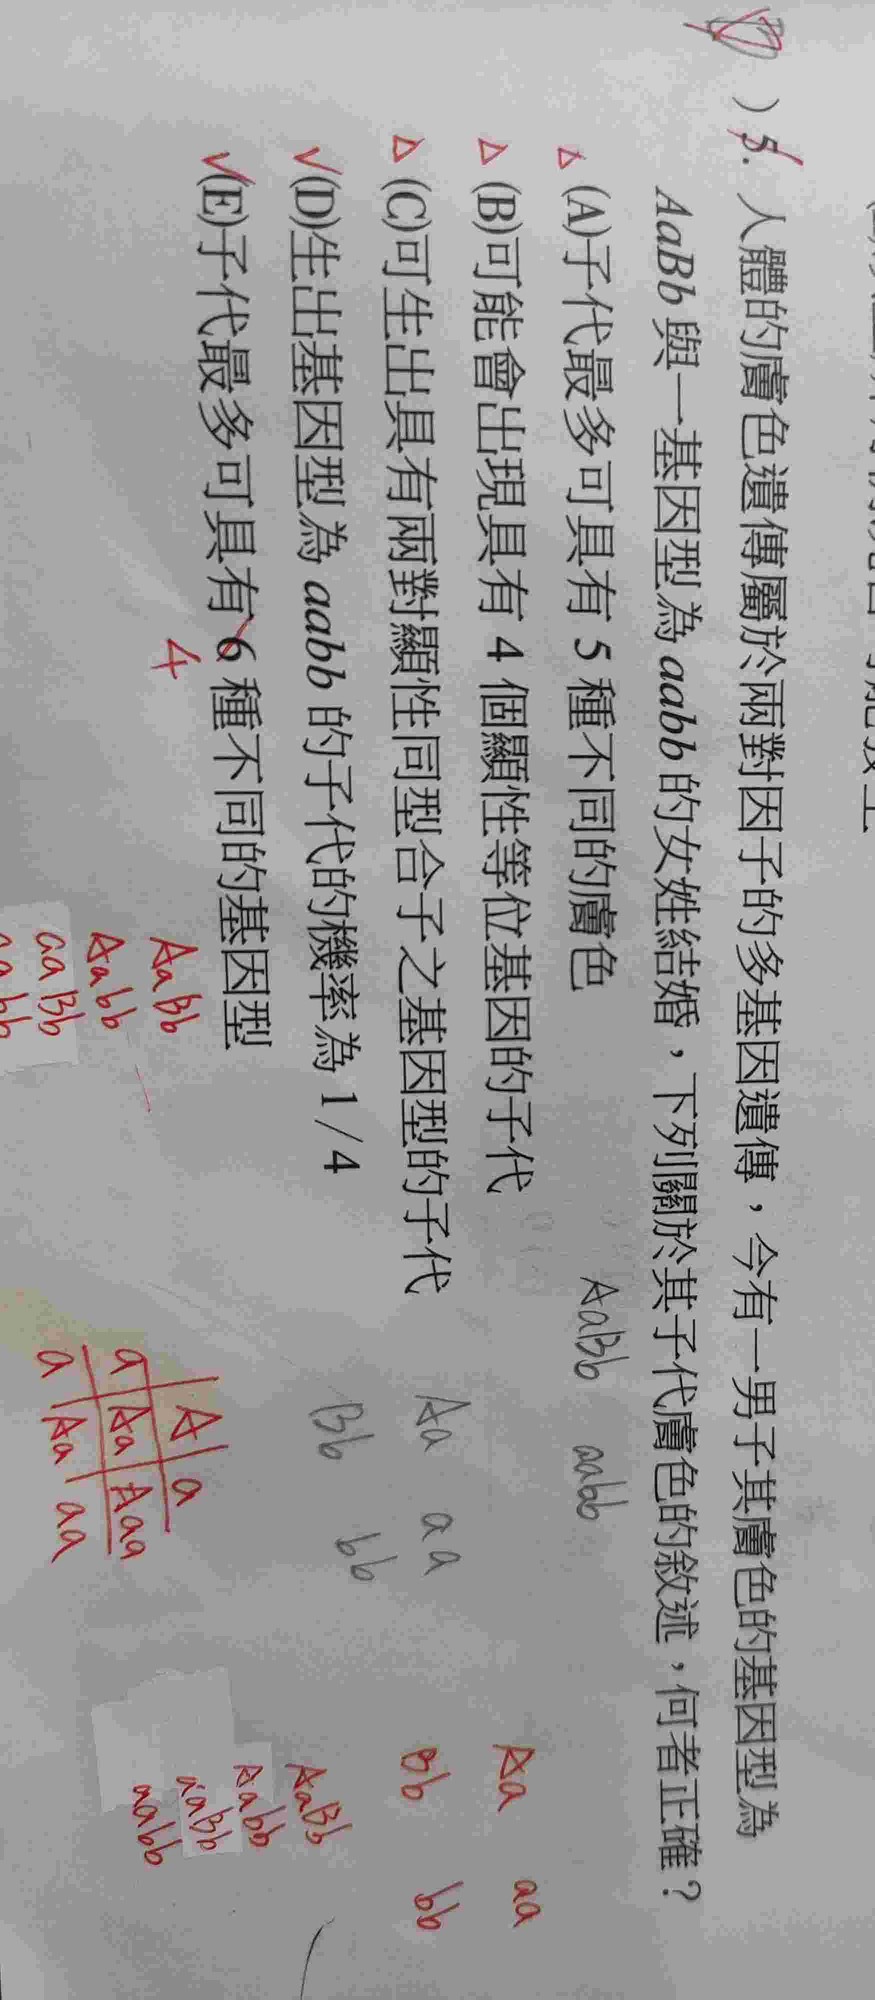 )5. 人體的膚色遺傳屬於兩對因子的多基因遺傳，今有一男子其膚色的基因型為
AaBb 與一基因型為 aabb 的女姓結婚，下列關於其子代膚色的敘述，何者正確？
(A)子代最多可具有 5 種不同的膚色
AaBb aabb
(B)可能會出現具有 4 個顯性等位基因的子代
Aa aa
(C)可生出具有兩對顯性同型合子之基因型的子代
Aa aa
Bb bb
(D)生出基因型為 aabb 的子代的機率為 1/4
Bb bb
AaBb
Aabb
aaBb
aabb
(E)子代最多可具有 6 種不同的基因型
4
A a
a Aa Aaa
a Aa aa
AaBb
Aabb
aaBb
aabb